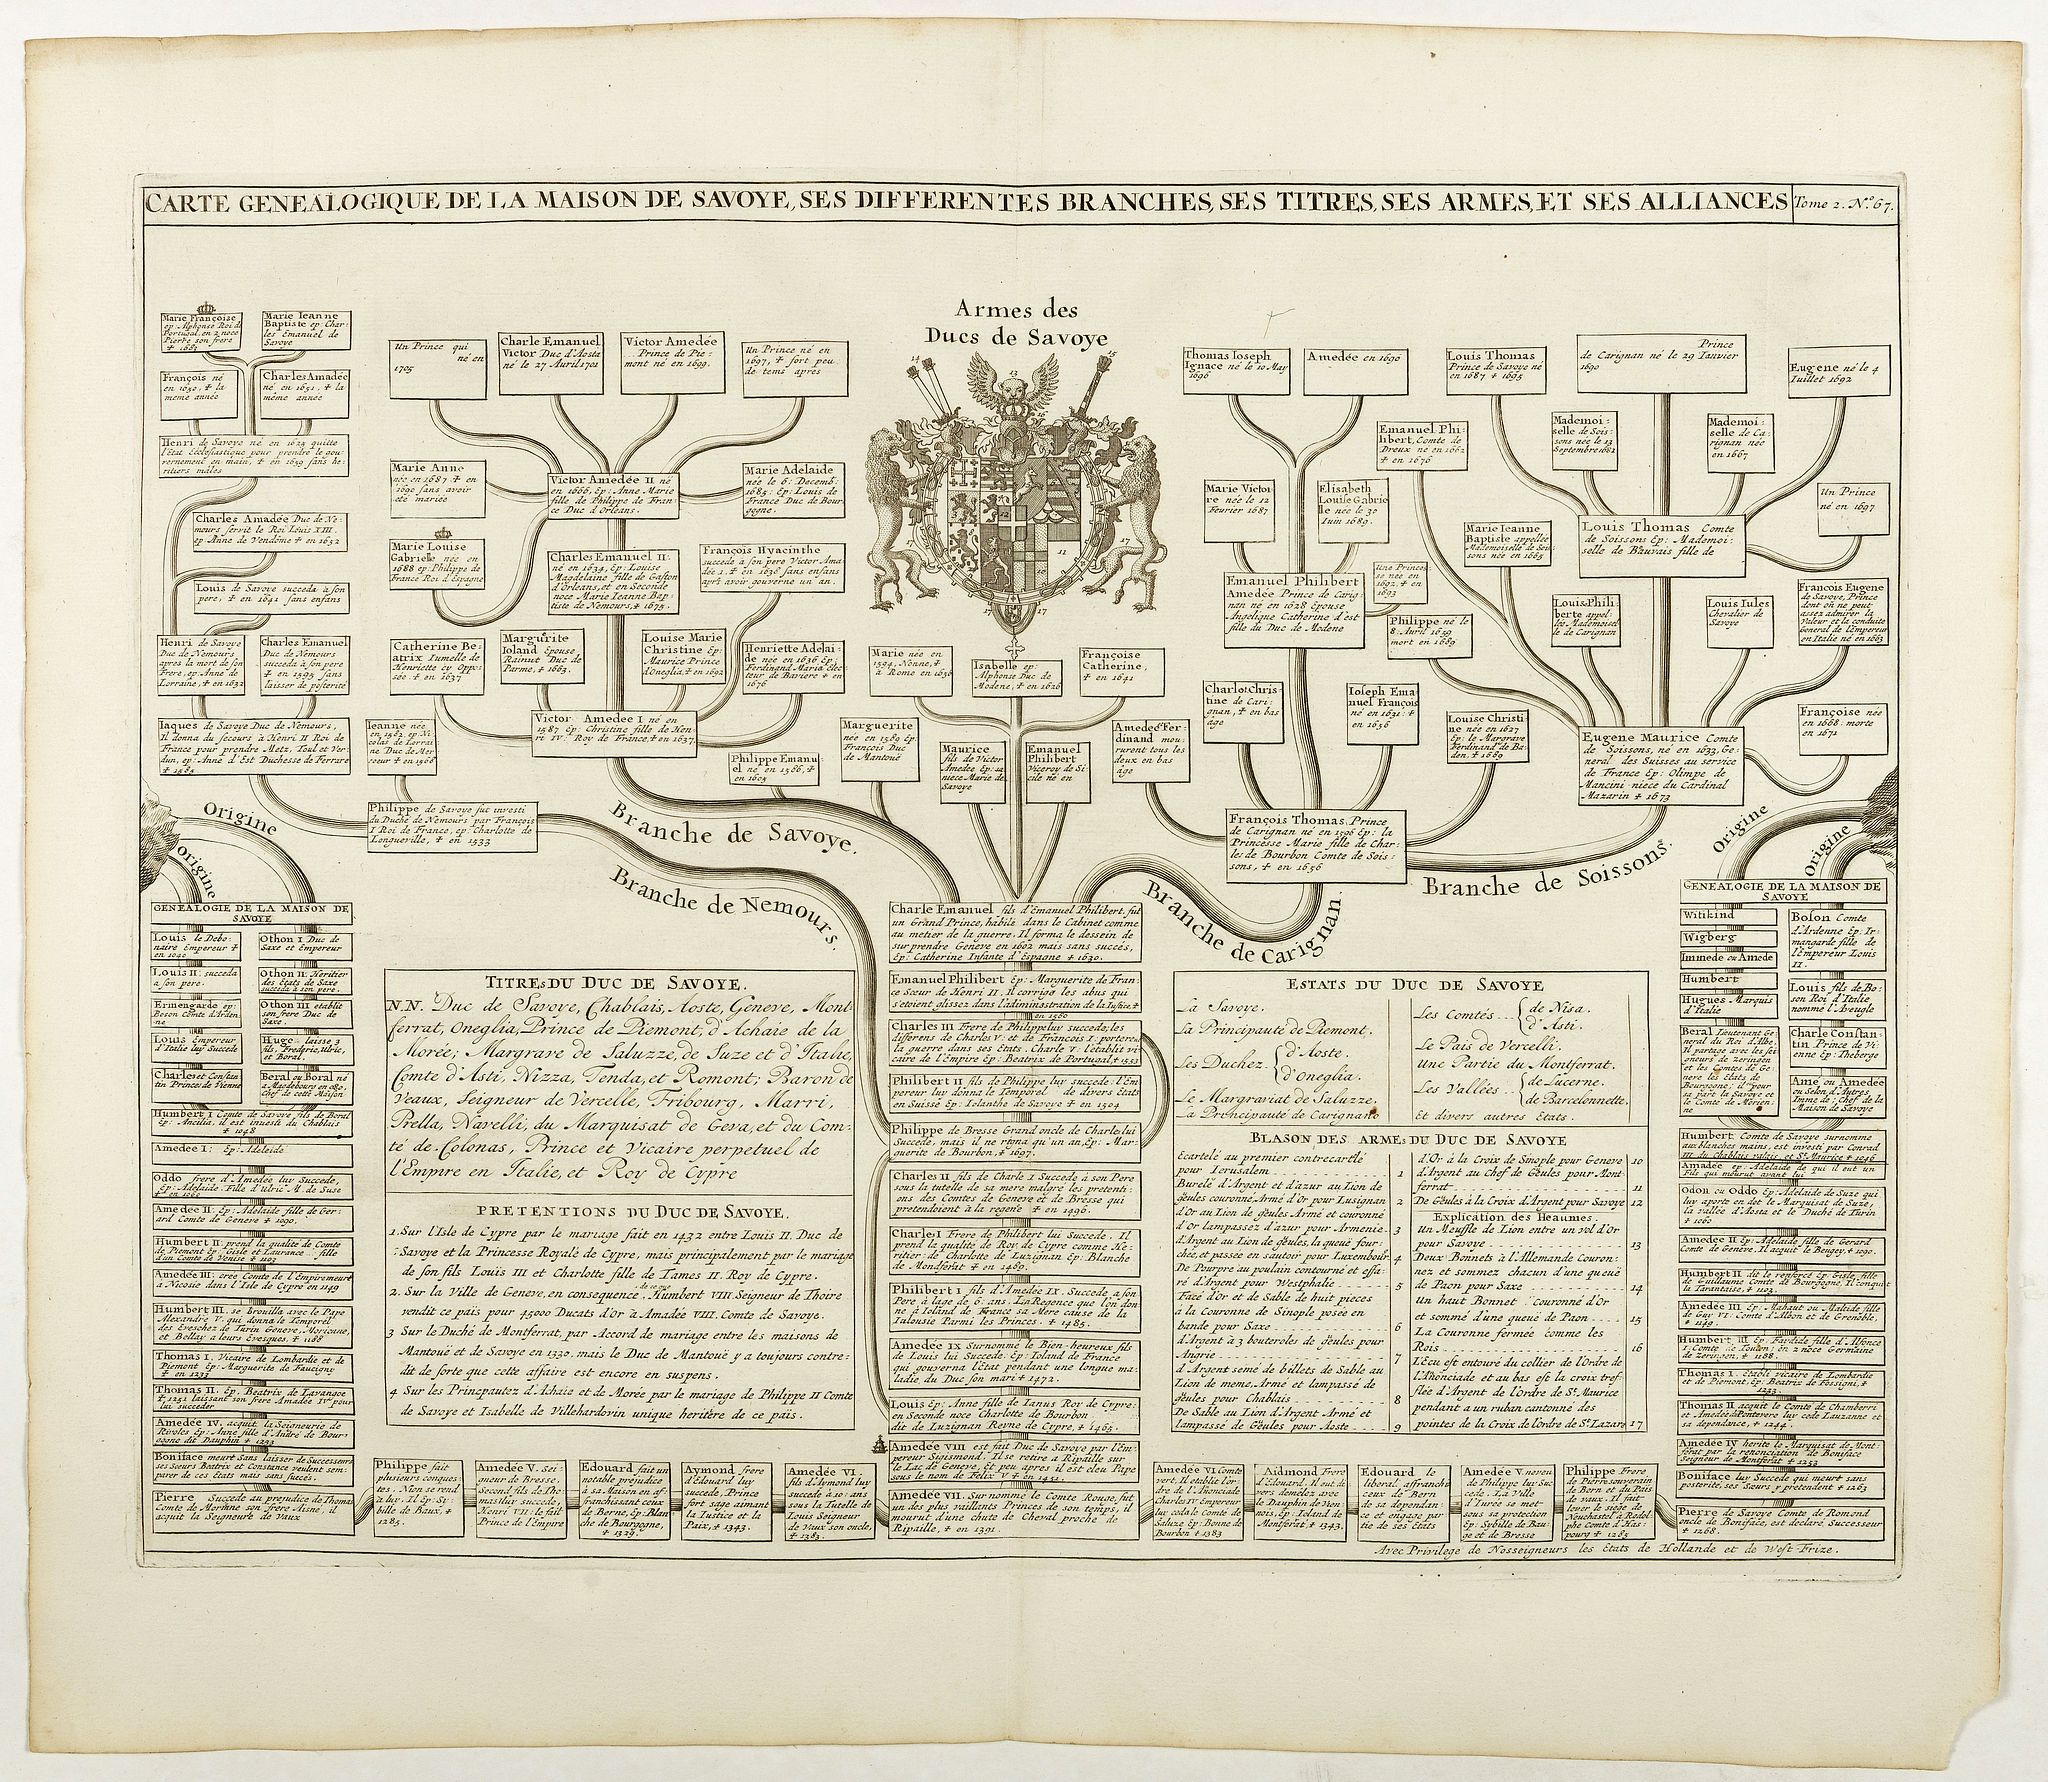 CARTE GENEALOGIQUE DE LA MAISON DE SAVOYE, SES DIFFERENTES BRANCHES, SES TITRES, SES ARMES, ET SES ALLIANCES
Tome 2. N.º 67.
Armes des
Ducs de Savoye
Marie Françoise
ep: Alphonse Roi de
Portugal, en 2 noce
Pierre son frere
Marie Ieanne
Baptiste ep: Char-
les Emanuel de
Savoye
François né
en 1650, ☨ la
meme année
Charles Amadée
né en 1651, ☨ la
même année
Henri de Savoye né en 1625 quitte
l'Etat Ecclesiastique pour prendre le gou-
vernement en main, ☨ en 1659 sans he-
ritiers mâles
Charles Amadée Duc de Ne-
mours servit le Roi Louis XIII.
ep: Anne de Vendôme ☨ en 1652
Louis de Savoye succeda à son
pere, ☨ en 1641 sans enfans
Henri de Savoye
Duc de Nemours
apres la mort de son
Frere, ep: Anne de
Lorraine, ☨ en 1632
Charles Emanuel
Duc de Nemours
succeda à son pere
☨ en 1595 sans
laisser de posterité
Iaques de Savoye Duc de Nemours,
Il donna du secours à Henri II Roi de
France pour prendre Metz, Toul et Ver-
dun, ep: Anne d'Est Duchesse de Ferrare
☨ 1585
Un Prince qui
né en
1705
Charle Emanuel
Victor Duc d'Aosta
né le 27 Avril 1701
Victor Amedée
Prince de Pie-
mont né en 1699.
Un Prince né en
1697, ☨ fort peu
de tems après
Marie Anne
née en 1687 ☨ en
1690 sans avoir
été mariée
Victor Amedée II né
en 1666, Ep: Anne Marie
fille de Philippe de Fran-
ce Duc d'Orleans.
Marie Adelaide
née le 6: Decemb:
1685: Ep: Louis de
France Duc de Bour-
gogne.
Marie Louise
Gabrielle née en
1688 ep: Philippe de
France Roi d'Espagne
Charles Emanuel II:
né en 1634, Ep: Louise
Magdelaine fille de Gaston
d'Orleans, et en Seconde
noce Marie Ieanne Bap-
tiste de Nemours, ☨ 1675.
François Hyacinthe
succeda à son pere Victor Ama-
dée 1. ☨ en 1638 sans enfans
aprs avoir gouverne un an.
Catherine Be-
atrix Iumelle de
Henriette ep: Oppo-
sée ☨ en 1637
Marguerite
Ioland Epouse
Rainut Duc de
Parme, ☨ 1663.
Louise Marie
Christine Ep:
Maurice Prince
d'Oneglia, ☨ en 1692
Henriette Adelai-
de née en 1636 Ep:
Ferdinand Maria Elec-
teur de Baviere ☨ en
1676
Ieanne née
en 1532 ep: Ni-
colas de Lorrai-
ne Duc de Mer-
coeur ☨ en 1568
Victor Amedée I né en
1587 Ep: Christine fille de Hen-
ri IV. Roy de France, ☨ en 1637.
Philippe Emanu-
el né en 1586, ☨
en 1605
Marguerite
née en 1589 Ep:
François Duc
de Mantoue
Marie née en
1594, Nonne, ☨
à Rome en 1656
Isabelle ep:
Alphonse Duc de
Modene, ☨ en 1626
Françoise
Catherine,
☨ en 1641
Maurice
fils de Victor
Amedée Ep: sa
niece Marie de
Savoye
Emanuel
Philibert
Viceroy de Si-
cile né en
Amedée Fer-
dinand mou-
rurent tous les
deux en bas
âge
Philippe de Savoye fut investi
du Duché de Nemours par François
I Roi de France, ep: Charlotte de
Longueville, ☨ en 1533
Thomas Ioseph
Ignace né le 10 May
1696
Amedée en 1690
Louis Thomas
Prince de Savoye né
en 1687 ☨ 1695
Prince
de Carignan né le 29 Ianvier
1690
Eugene né le 4
Iuillet 1692
Emanuel Phi-
libert, Comte de
Dreux né en 1662
☨ en 1676
Mademoi-
selle de Sois-
sons née le 13
Septembre 1682
Mademoi-
selle de Ca-
rignan née
en 1667
Marie Victoi-
re née le 12
Fevrier 1687
Elisabeth
Louise Gabrie-
lle née le 30
Iuin 1689.
Un Prince
né en 1697
Marie Ieanne
Baptiste appellée
Mademoiselle de Sois-
sons née en 1665
Louis Thomas Comte
de Soissons Ep: Mademoi-
selle de Bauvais fille de
Emanuel Philibert
Amedée Prince de Carig-
nan né en 1628 Epouse
Angelique Catherine d'est
fille du Duc de Modene
Une Princes-
se née en
1692, ☨ en
1693
Philippe né le
8. Avril 1659
mort en 1689
Louis Phili-
berte appel-
lée Mademoisel-
le de Carignan
Louis Iules
Chevalier de
Savoye
Francois Eugene
de Savoye, Prince
dont on ne peut
assez admirer la
Valeur et la conduite
General de l'Empereur
en Italie né en 1663
Charlote Chris-
tine de Cari-
gnan, ☨ en bas
âge
Ioseph Ema-
nuel François
né en 1631; ☨
en 1656
Louise Christi-
ne née en 1627
Ep: le Margrave
Ferdinand de Ba-
den. ☨ 1689
Eugene Maurice Comte
de Soissons, né en 1633, Ge-
neral des Suisses au service
de France Ep: Olimpe de
Mancini niece du Cardinal
Mazarin ☨ 1673
Françoise née
en 1668: morte
en 1671
François Thomas, Prince
de Carignan né en 1596 Ep: la
Princesse Marie fille de Char-
les de Bourbon Comte de Sois-
sons, ☨ en 1656
Origine
Origine
Branche de Savoye.
Branche de Nemours.
Branche de Carignan
Branche de Soissons.
Origine
Origine
GENEALOGIE DE LA MAISON DE
SAVOYE
Louis le Debo-
naire Empereur ☨
en 1040
Othon I Duc de
Saxe et Empereur
Louis II: succeda
a son pere.
Othon II: Heritier
des Etats de Saxe
succeda à son pere.
Ermengarde ep:
Boson Comte d'Arden-
ne
Othon III etablit
son frere Duc de
Saxe.
Louis Empereur
d'Italie luy Succede
Huge: laisse 3
fils, Frederic, Ulric,
et Boral.
Charles et Constan-
tin Princes de Vienne
Beral ou Boral né
a Magdebourg en 980.
Chef de cette Maison
Humbert I Comte de Savoye, fils de Boral
Ep: Ancilia, il est investi du Chablais
☨ 1048
Amedée I: Ep: Adeleide
Oddo frere d'Amedée luy Succede,
Ep: Adelaide Fille d'Ulric M. de Suse
☨ en 1060
Amedée II: Ep: Adelaide fille de Ger-
ard Comte de Geneve ☨ 1090.
Humbert II: prend la qualité de Comte
de Piemont Ep: Gisle et Laurance fille
d'un Comte de Venise ☨ 1103
Amedée III: creé Comte de l'Empire meurt
a Nicosie dans l'Isle de Cypre en 1149
Humbert III. se Brouilla avec le Pape
Alexandre V. qui donna le Temporel
des Eveschez de Turin Geneve, Moriane,
et Bellay a leurs Evesques, ☨ 1188
Thomas I, Vicaire de Lombardie et de
Piemont Ep: Marguerite de Faucigny
☨ en 1233
Thomas II. Ep: Beatrix de Lavangoe
☨ 1251 laissant son frere Amadée IV pour
lui succeder
Amedée IV. acquit la Seigneurie de
Rivoles Ep: Anne fille d'André de Bour-
gogne dit Dauphin ☨ 1253
Boniface meurt Sans laisser de Successeurs
ses Sœurs Beatrix et Constance veulent sem-
parer de ces Etats mais sans succés.
Pierre Succede au prejudice de Thomas
Comte de Moriene son frere Aisné, il
acquit la Seigneure de Vaux
TITRES DU DUC DE SAVOYE.
N.N. Duc de Savoye, Chablais, Aoste, Geneve, Mont-
ferrat, Oneglia, Prince de Piemont, d'Achaie de la
Morée; Margrave de Saluzze, de Suze et d'Italie,
Comte d'Asti, Nizza, Tenda, et Romont; Baron de
Veaux, Seigneur de Vercelle, Fribourg, Marri,
Prella, Navelli, du Marquisat de Geva, et du Com-
té de Colonas, Prince et Vicaire perpetuel de
l'Empire en Italie, et Roy de Cypre
PRETENTIONS DU DUC DE SAVOYE.
1. Sur l'Isle de Cypre par le mariage fait en 1432 entre Louis II. Duc de
Savoye et la Princesse Royale de Cypre, mais principalement par le mariage
de son fils Louis III et Charlotte fille de Iames II. Roy de Cypre.
2. Sur la Ville de Geneve, en consequence de ce que Humbert VIII. Seigneur de Thoire
vendit ce pais pour 45000 Ducats d'Or a Amadée VIII. Comte de Savoye.
3 Sur le Duché de Montferrat, par Accord de mariage entre les maisons de
Mantoué et de Savoye en 1330. mais le Duc de Mantoué y a toujours contre-
dit de sorte que cette affaire est encore en suspens.
4 Sur les Principautez d'Achaie et de Morée par le mariage de Philippe II Comte
de Savoye et Isabelle de Villehardovin unique heritère de ce païs.
Charle Emanuel fils d'Emanuel Philibert, fut
un Grand Prince, habile dans le Cabinet comme
au metier de la guerre. Il forma le dessein de
surprendre Geneve en 1602 mais sans succés,
Ep: Catherine Infante d'Espagne ☨ 1630.
Emanuel Philibert Ep: Marguerite de Fran-
ce Sœur de Henri II. Il corrige les abus qui
s'etoient glissez dans l'adiministration de la Iustice, ☨
en 1580
Charles III Frere de Philippe luy succede; les
differens de Charles V. et de Francois I. porterent
la guerre dans ses Etats. Charle V. l'établit vi-
caire de l'Empire Ep: Beatrix de Portugal, ☨ 1553
Philibert II fils de Philippe luy succede: l'Em-
pereur luy donna le Temporel de divers Etats
en Suisse Ep: Iolanthe de Savoye ☨ en 1504
Philippe de Bresse Grand oncle de Charle, lui
Succede, mais il ne regna qu'un an, Ep: Mar-
guerite de Bourbon, ☨ 1697.
Charles II fils de Charle I Succede à son Pere
sous la tutelle de sa mere malgré les pretenti-
ons des Comtes de Geneve et de Bresse qui
pretendoient à la regene ☨ en 1496.
Charle I Frere de Philibert lui Succede. Il
prend la qualité de Roy de Cypre comme He-
ritier de Charlotte de Luzignan Ep: Blanche
de Mondferat ☨ en 1489.
Philibert I fils d'Amedée IX. Succede a son
Pere à l'age de 6 ans. La Regence que l'on don-
ne à Ioland de France sa Mere cause de la
Ialousie Parmi les Princes. ☨ 1485.
Amedée IX Surnommé le Bien-heureux fils
de Louis lui Succede Ep: Ioland de France
qui gouverna l'Etat pendant une longue ma-
ladie du Duc son mari ☨ 1472.
Louis Ep: Anne fille de Ianus Roy de Cypre:
en Seconde noce Charlotte de Bourbon
dit de Luzignan Reyne de Cypre, ☨ 1465.
Amedée VIII est fait Duc de Savoye par l'Em-
pereur Sigismond. Il se retire a Ripaille sur
le Lac de Geneve, Et peu apres il est éleu Pape
sous le nom de Felix V ☨ en 1451.
Amedée VII. Sur nommé le Comte Rouge, fut
un des plus vaillants Princes de son temps, il
mourut d'une chute de Cheval proche de
Ripaille, ☨ en 1391.
Philippe fait
plusieurs conques-
tes. Nion se rend
a luy. Il Ep: Sy-
bille de Baux, ☨
1285.
Amedée V. Sei-
gneur de Bresse.
Second fils de Tho-
mas luy succede,
Henri VII. le fait
Prince de l'Empire
Edouard fait un
notable prejudice
à sa Maison en af-
franchissant ceux
de Berne, Ep: Blan-
che de Bourgogne,
☨ 1329.
Aymond frere
d'Edouard luy
succede. Prince
fort sage aimant
la Iustice et la
Paix, ☨ 1343.
Amedée VI.
fils d'Aymond luy
succede à 10: ans
sous la Tutelle de
Louis Seigneur
de Vaux son oncle,
☨ 1383.
Amedée VI Comte
vert, Il etablit l'or-
dre de l'Anonciade
Charles IV Empereur
lui cede le Comte de
Saluze Ep: Bonne de
Bourbon ☨ 1383
Aidmond Frere
d'Edouard. Il eut di-
vers demelez avec
le Dauphin de Vien-
nois, Ep: Ioland de
Montferat, ☨ 1343.
Edouard le
liberal, affranchi
ceux de Bern
de sa dependan-
ce et engage par-
tie de ses Etats
Amedée V. neveu
de Philippe luy Suc-
cede. La Ville
d'Ivrée se met
sous sa protection
Ep: Sybille de Bau-
ge et de Bresse
Philippe Frere
de Pierre souverain
de Bern et du Pais
de vaux. Il fait
lever le siége de
Neuchastel à Radol-
phe Comte d'Has-
pourg ☨ 1285
ESTATS DU DUC DE SAVOYE
La Savoye.
La Principauté de Piemont.
Les Duchez d'Aoste.
d'Oneglia.
Le Margraviat de Saluzze.
La Principauté de Carignano
Les Comtés de Nisa.
d'Asti.
Le Païs de Vercelli.
Une Partie du Montferrat.
Les Vallées de Lucerne.
de Barcelonnette.
Et divers autres Etats.
BLASON DES ARMES DU DUC DE SAVOYE
Ecartelé au premier contrecartlé
pour Ierusalem 1
Burelé d'Argent et d'azur au Lion de
gêules couronné Armé d'Or pour Lusignan 2
d'Or au Lion de gêules Armé et couronné
d'Or lampassez d'azur pour Armenie 3
d'Argent au Lion de gêules, la queuë four-
chée, et passée en sautoir pour Luxembour 4
De Pourpre au poulain contourné et effa-
ré d'Argent pour Westphalie 5
Facé d'Or et de Sable de huit pieces
à la Couronne de Sinople posée en
bande pour Saxe 6
d'Argent à 3 bouteroles de gêules pour
Angrie 7
d'Argent semé de billets de Sable au
Lion de meme, Armé et lampassé de
gêules pour Chablais 8
De Sable au Lion d'Argent Armé et
lampassé de Gêules pour Aoste 9
d'Or à la Croix de Sinople pour Geneve 10
d'Argent au Chef de Gêules pour Mont-
ferrat 11
De Gêules à la Croix d'Argent pour Savoye 12
Explication des Heaumes.
Un Meuffle de Lion entre un vol d'Or
pour Savoye 13
Deux Bonnets à l'Allemande Couron-
nez et sommez chacun d'une queüe
de Paon pour Saxe 14
Un haut Bonnet Couronné d'Or
et sommé d'une queüe de Paon 15
La Couronne fermée comme les
Rois 16
L'Ecu est entouré du collier de l'Ordre de
l'Anonciade et au bas est la croix tref-
flée d'Argent de l'Ordre de St. Maurice
pendant a un ruban cantonné des
pointes de la Croix de l'ordre de St. Lazare 17
GENEALOGIE DE LA MAISON DE
SAVOYE
Witikind
Wigberg
Immede ou Amede
Humbert
Hugues Marquis
d'Italie
Beral Lieutenant Ge-
neral du Roi d'Arle,
Il partage avec les sei-
gneurs de Zeringuen
et les Comtes de Ge-
neve les Etats de
Bourgogne; il eut pour
sa part la Savoye et
le Comte de Morien-
ne
Boson Comte
d'Ardenne Ep: Ir-
mangarde fille de
l'Empereur Louis
II.
Louis fils de Bo-
son Roi d'Italie
nommé l'Aveugle
Charle Constan-
tin Prince de Vi-
enne Ep: Theberge
Ame ou Amedée
ou Selon d'Autres,
Imme de: Chef de la
Maison de Savoye
Humbert Comte de Savoye surnommé
aux blanches mains, est investi par Conrad
III du chablais valais, et St. Maurice ☨ 1048
Amadée ep: Adelaide de qui il eut un
Fils qui mourut avant lui
Odon ou Oddo Ep: Adelaide de Suze qui
luy aporte en dot le Marquisat de Suze,
la vallée d'Aosta et le Duché de Turin
☨ 1060
Amedée II Ep: Adelaide fille de Gerard
Comte de Geneve. Il acquit le Beugey, ☨ 1090.
Humbert II dit le renforcé Ep: Gisle, fille
de Guillaume Comte de Bourgogne, Il conquit
la Tarantaise, ☨ 1103.
Amedée III Ep: Mahaut ou Matilde fille
de Guy VI. Comte d'Albon et de Grenoble,
☨ 1149.
Humbert III Ep: Faidide fille d'Ilfonce
I. Comte de Toulouse; en 2 noce Germaine
de Zeringen, ☨ 1188.
Thomas I. etabli vicaire de Lombardie
et de Piemont, Ep: Beatrix de Fossigni, ☨
1233
Thomas II acquit le Comté de Chamberri
et Amedée Pontevere luy cede Lauzanne et
sa dependance, ☨ 1244
Amedée IV herite le Marquisat de Mont-
ferat par la renonciation de Boniface
Seigneur de Montferat ☨ 1253
Boniface luy Succede qui meurt sans
posterité, ses Sœurs y pretendent ☨ 1263
Pierre de Savoye Comte de Romond
oncle de Boniface, est declaré, Successeur
☨ 1268.
Avec Privilege de Nosseigneurs les Etats de Hollande et de West-Frize.